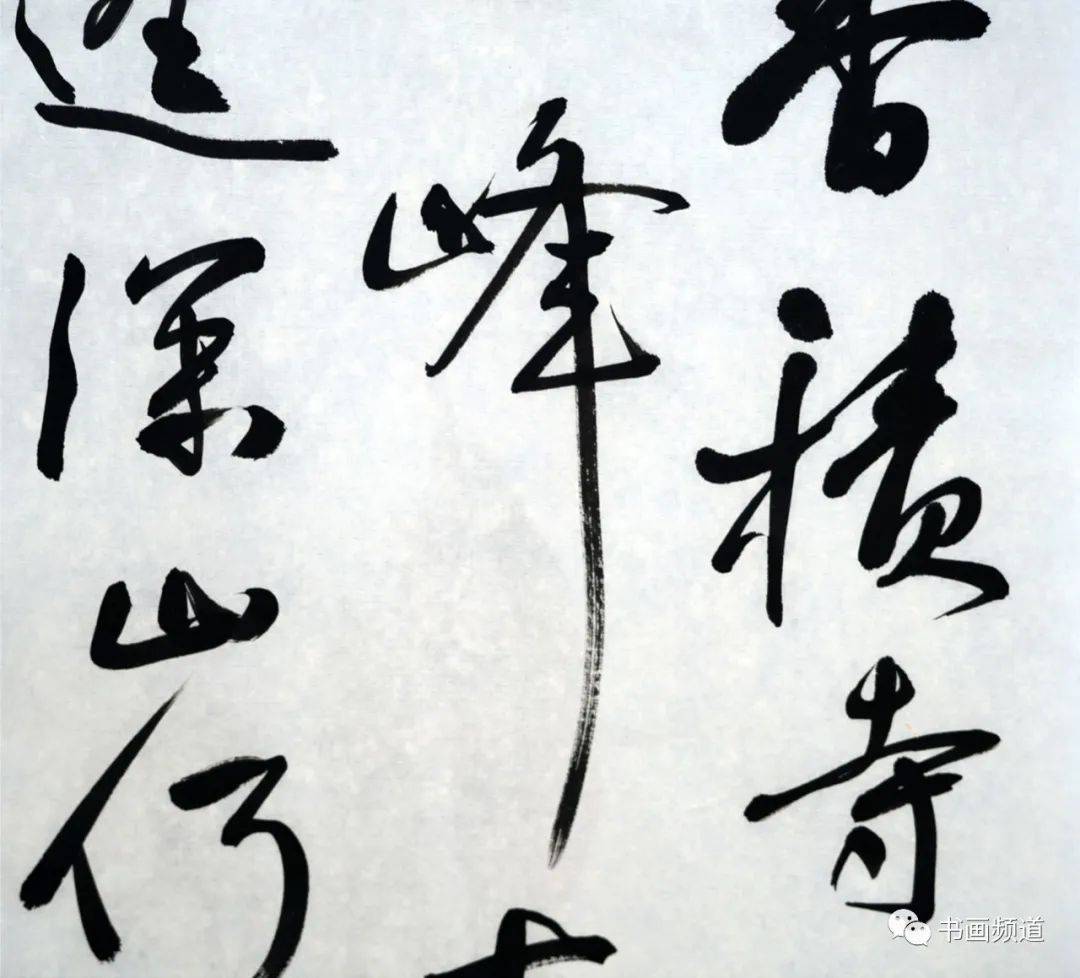 香積寺
峰
逕深山何
书画频道